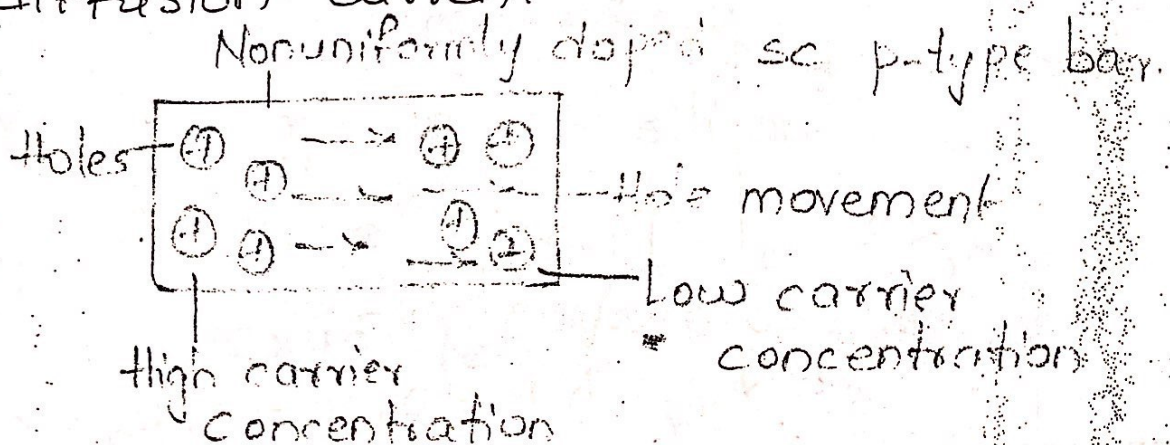 Diffusion current
Nonuniformly doped sc p-type bar.
Holes
Hole movement
Low carrier
concentration
High carrier
concentration